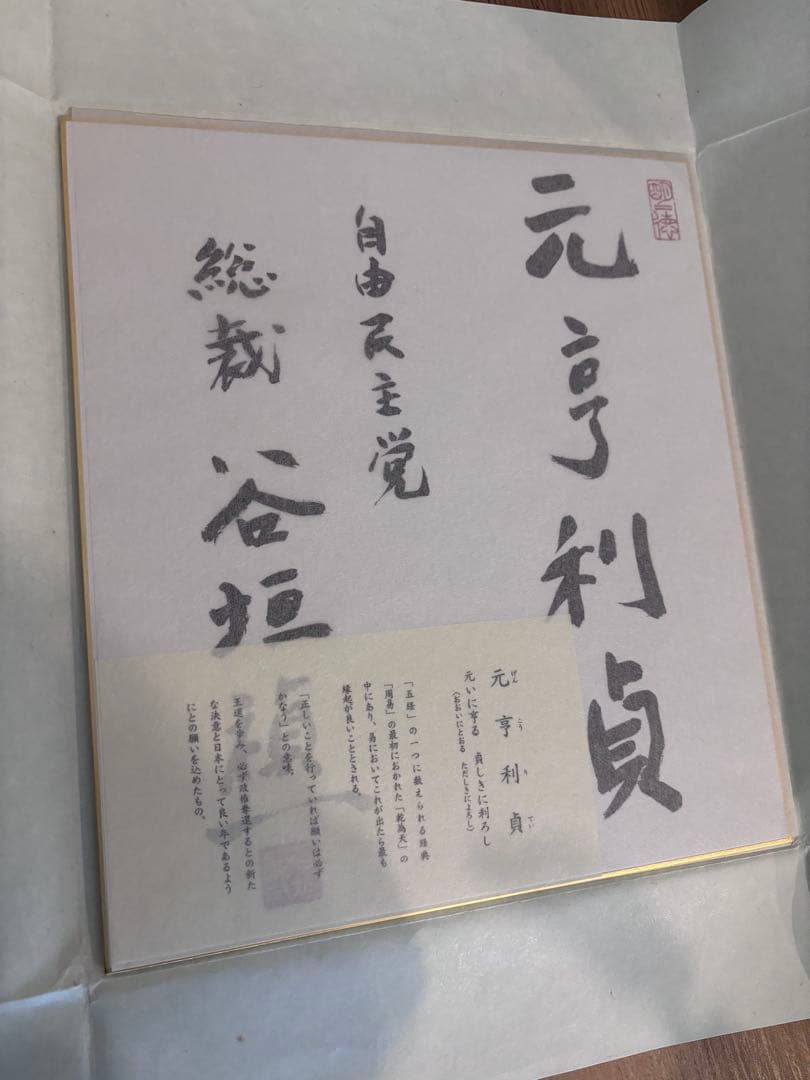 元亨利貞
自由民主党
総裁 谷垣禎一
げん こう り てい
元亨利貞
元いに亨る 貞しきに利ろし
(おおいにとおる ただしきによろし)
「五経」の一つに数えられる経典
「周易」の最初におかれた「乾為天」の
中にあり、易においてこれが出たら最も
縁起が良いこととされる。
「正しいことを行っていれば願いは必ず
かなう」との意味。
王道を歩み、必ず政権奪還するとの新た
な決意と日本にとって良い年であるよう
にとの願いを込めたもの。